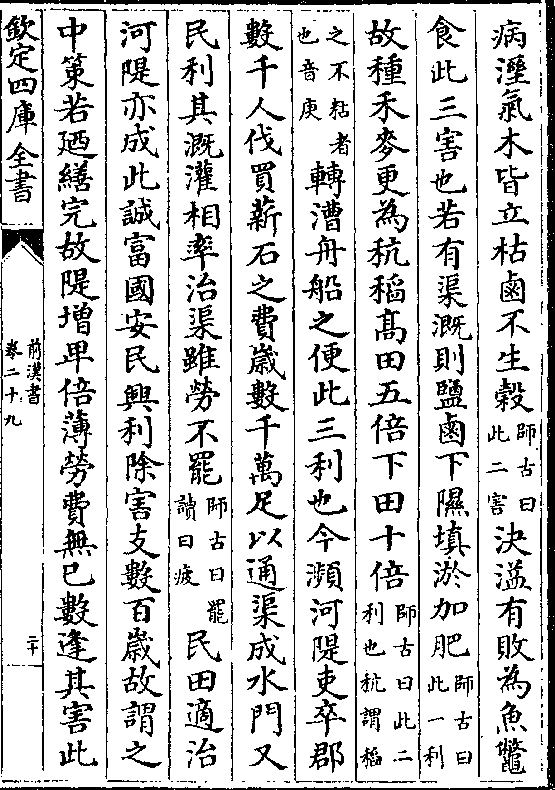 病溼氣木皆立枯鹵不生穀師古曰此二害決溢有敗為魚鼈
食此三害也若有渠溉則鹽鹵下隰填淤加肥師古曰此一利
故種禾麥更為秔稻髙田五倍下田十倍師古曰此二利也秔謂稻
之不粘者也音庚轉漕舟船之便此三利也今瀕河隄吏卒郡
數千人伐買薪石之費歲數千萬足以通渠成水門又
民利其溉灌相率治渠雖勞不罷師古曰罷讀曰疲民田適治
河隄亦成此誠富國安民興利除害支數百歲故謂之
中策若廼繕完故隄增卑倍薄勞費無已數逢其害此
欽定四庫全書
前漢書
卷二十九
二十